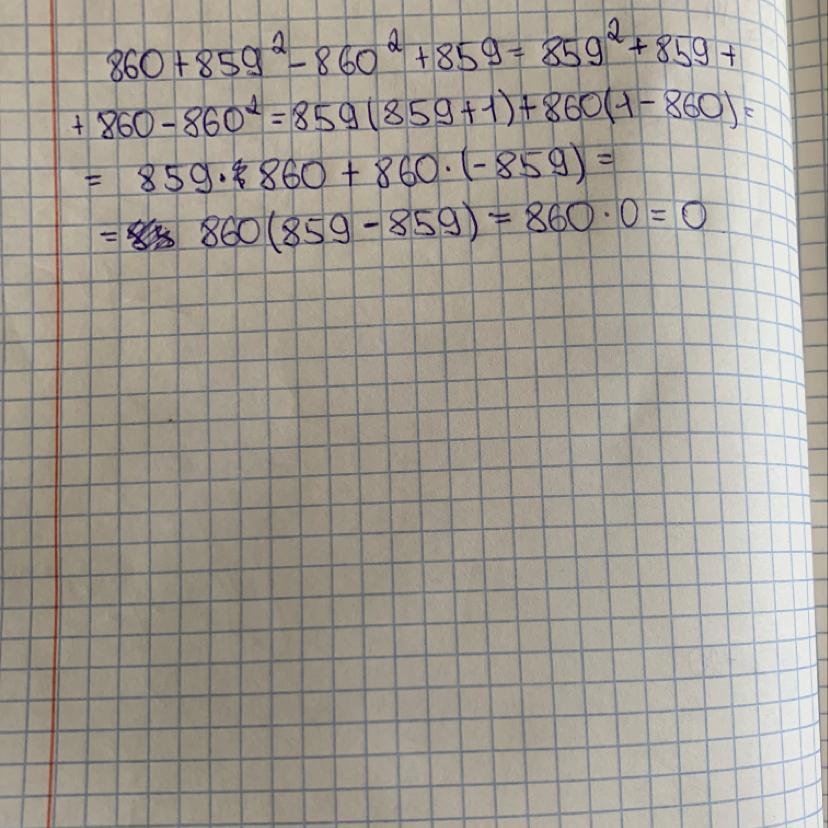 860+859²-860²+859=859²+859+
+860-860²=859(859+1)+860(1-860)=
= 859·860+860·(-859)=
= 860(859-859)=860·0=0